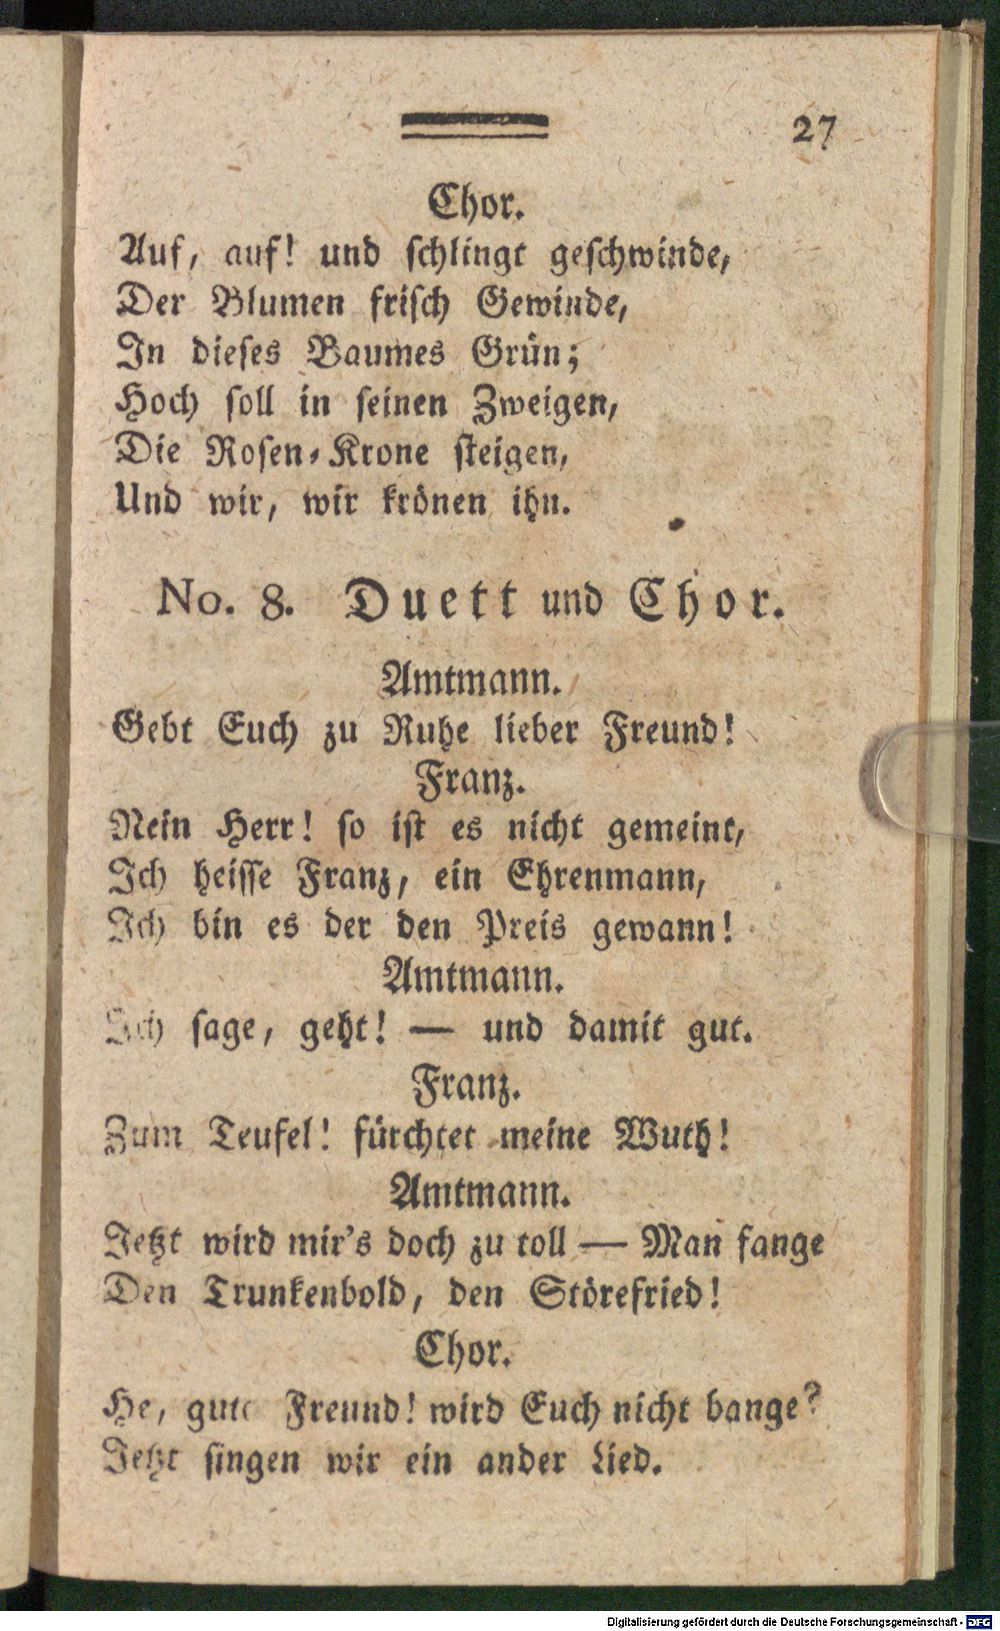 27
Chor.
Auf, auf! und schlingt geschwinde,
Der Blumen frisch Gewinde,
In dieses Baumes Grün;
Hoch soll in seinen Zweigen,
Die Rosen-Krone steigen,
Und wir, wir krönen ihn.
No. 8. Duett und Chor.
Amtmann.
Gebt Euch zu Ruhe lieber Freund!
Franz.
Nein Herr! so ist es nicht gemeint,
Ich heisse Franz, ein Ehrenmann,
Ich bin es der den Preis gewann!
Amtmann.
Ich sage, geht! — und damit gut.
Franz.
Zum Teufel! fürchtet meine Wuth!
Amtmann.
Jetzt wird mir's doch zu toll — Man fange
Den Trunkenbold, den Störefried!
Chor.
He, gute Freund! wird Euch nicht bange?
Jetzt singen wir ein ander Lied.
Digitalisierung gefördert durch die Deutsche Forschungsgemeinschaft - DFG